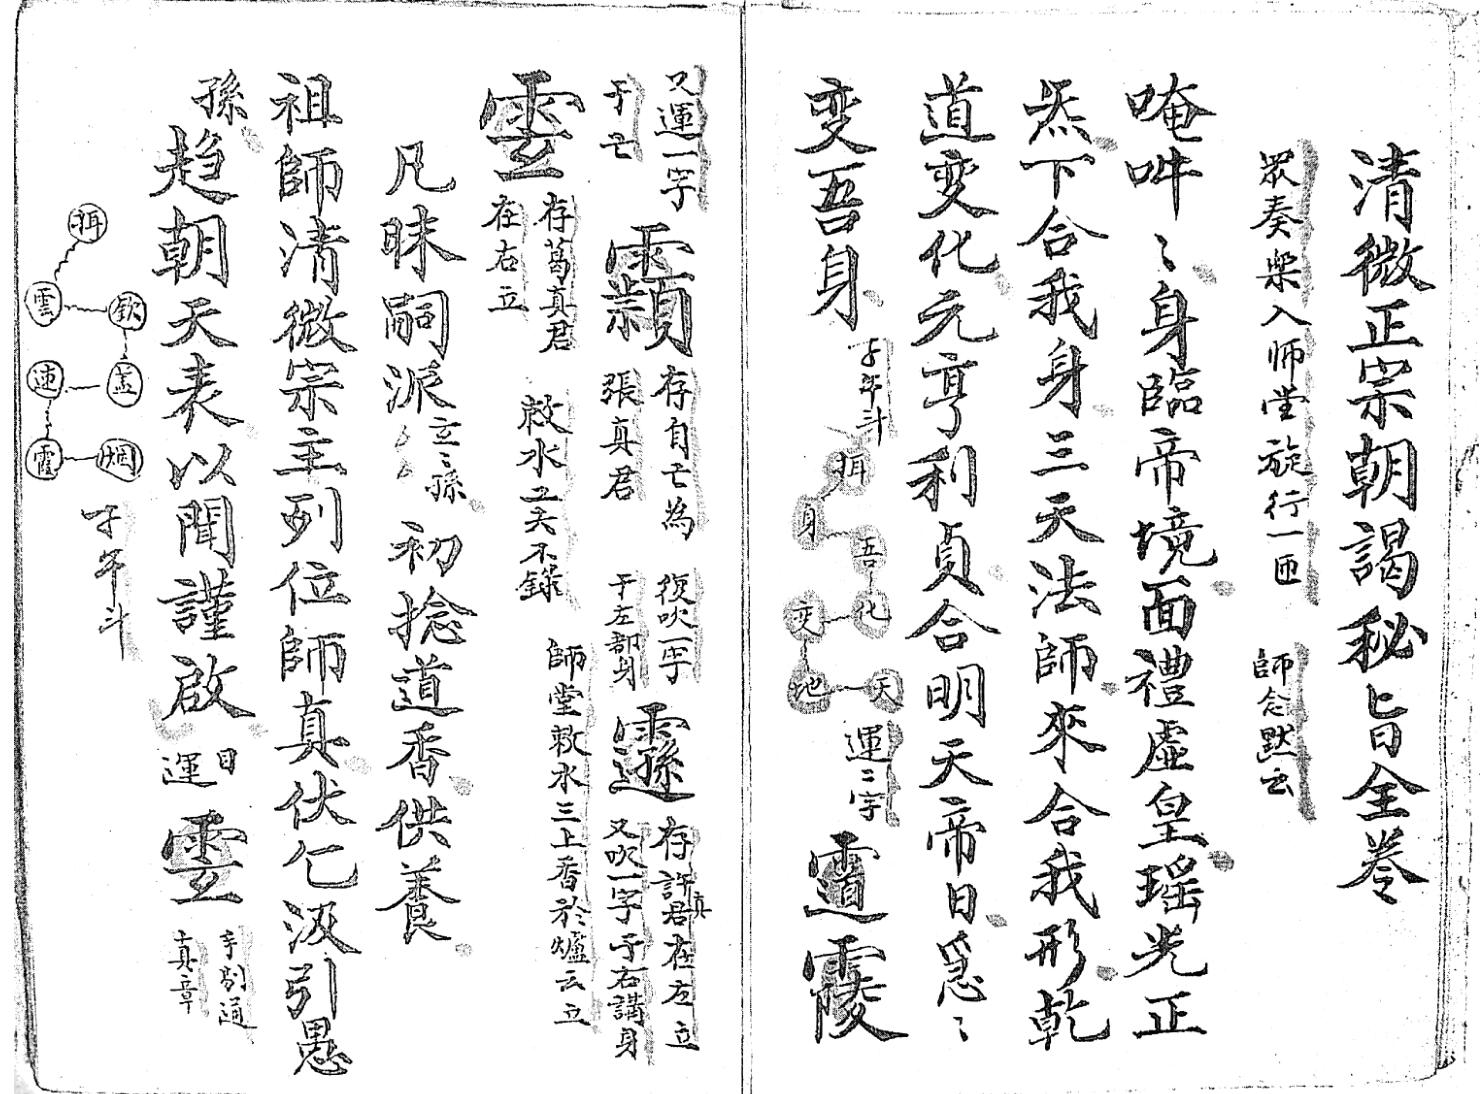 清微正宗朝謁秘旨全卷
眾奏樂入师堂旋行一匝　師念默云
唵吽〻身臨帝境面禮虛皇瑶光正
炁下合我身三天法師來合我形乾
道変化元亨利貞合明天帝日爲〻
変吾身
子午斗
珥
身
吾
化
変
地
天
運〻字
又運一字
于亡
存自亡為
張真君
復吹一字
于左部身
存許真君在左立
又吹一字于右講身
存葛真君
在右立
敕水工夫不錄
師堂敕水三上香於爐云立
凡昧嗣派
立〻孫
初捻道香供養
祖師清微宗主列位師真伏乞汲引愚
孫
趋朝天表以聞謹啟
日
運
真章
珥
雲
欽
蓋
連
霞
烟
子午斗